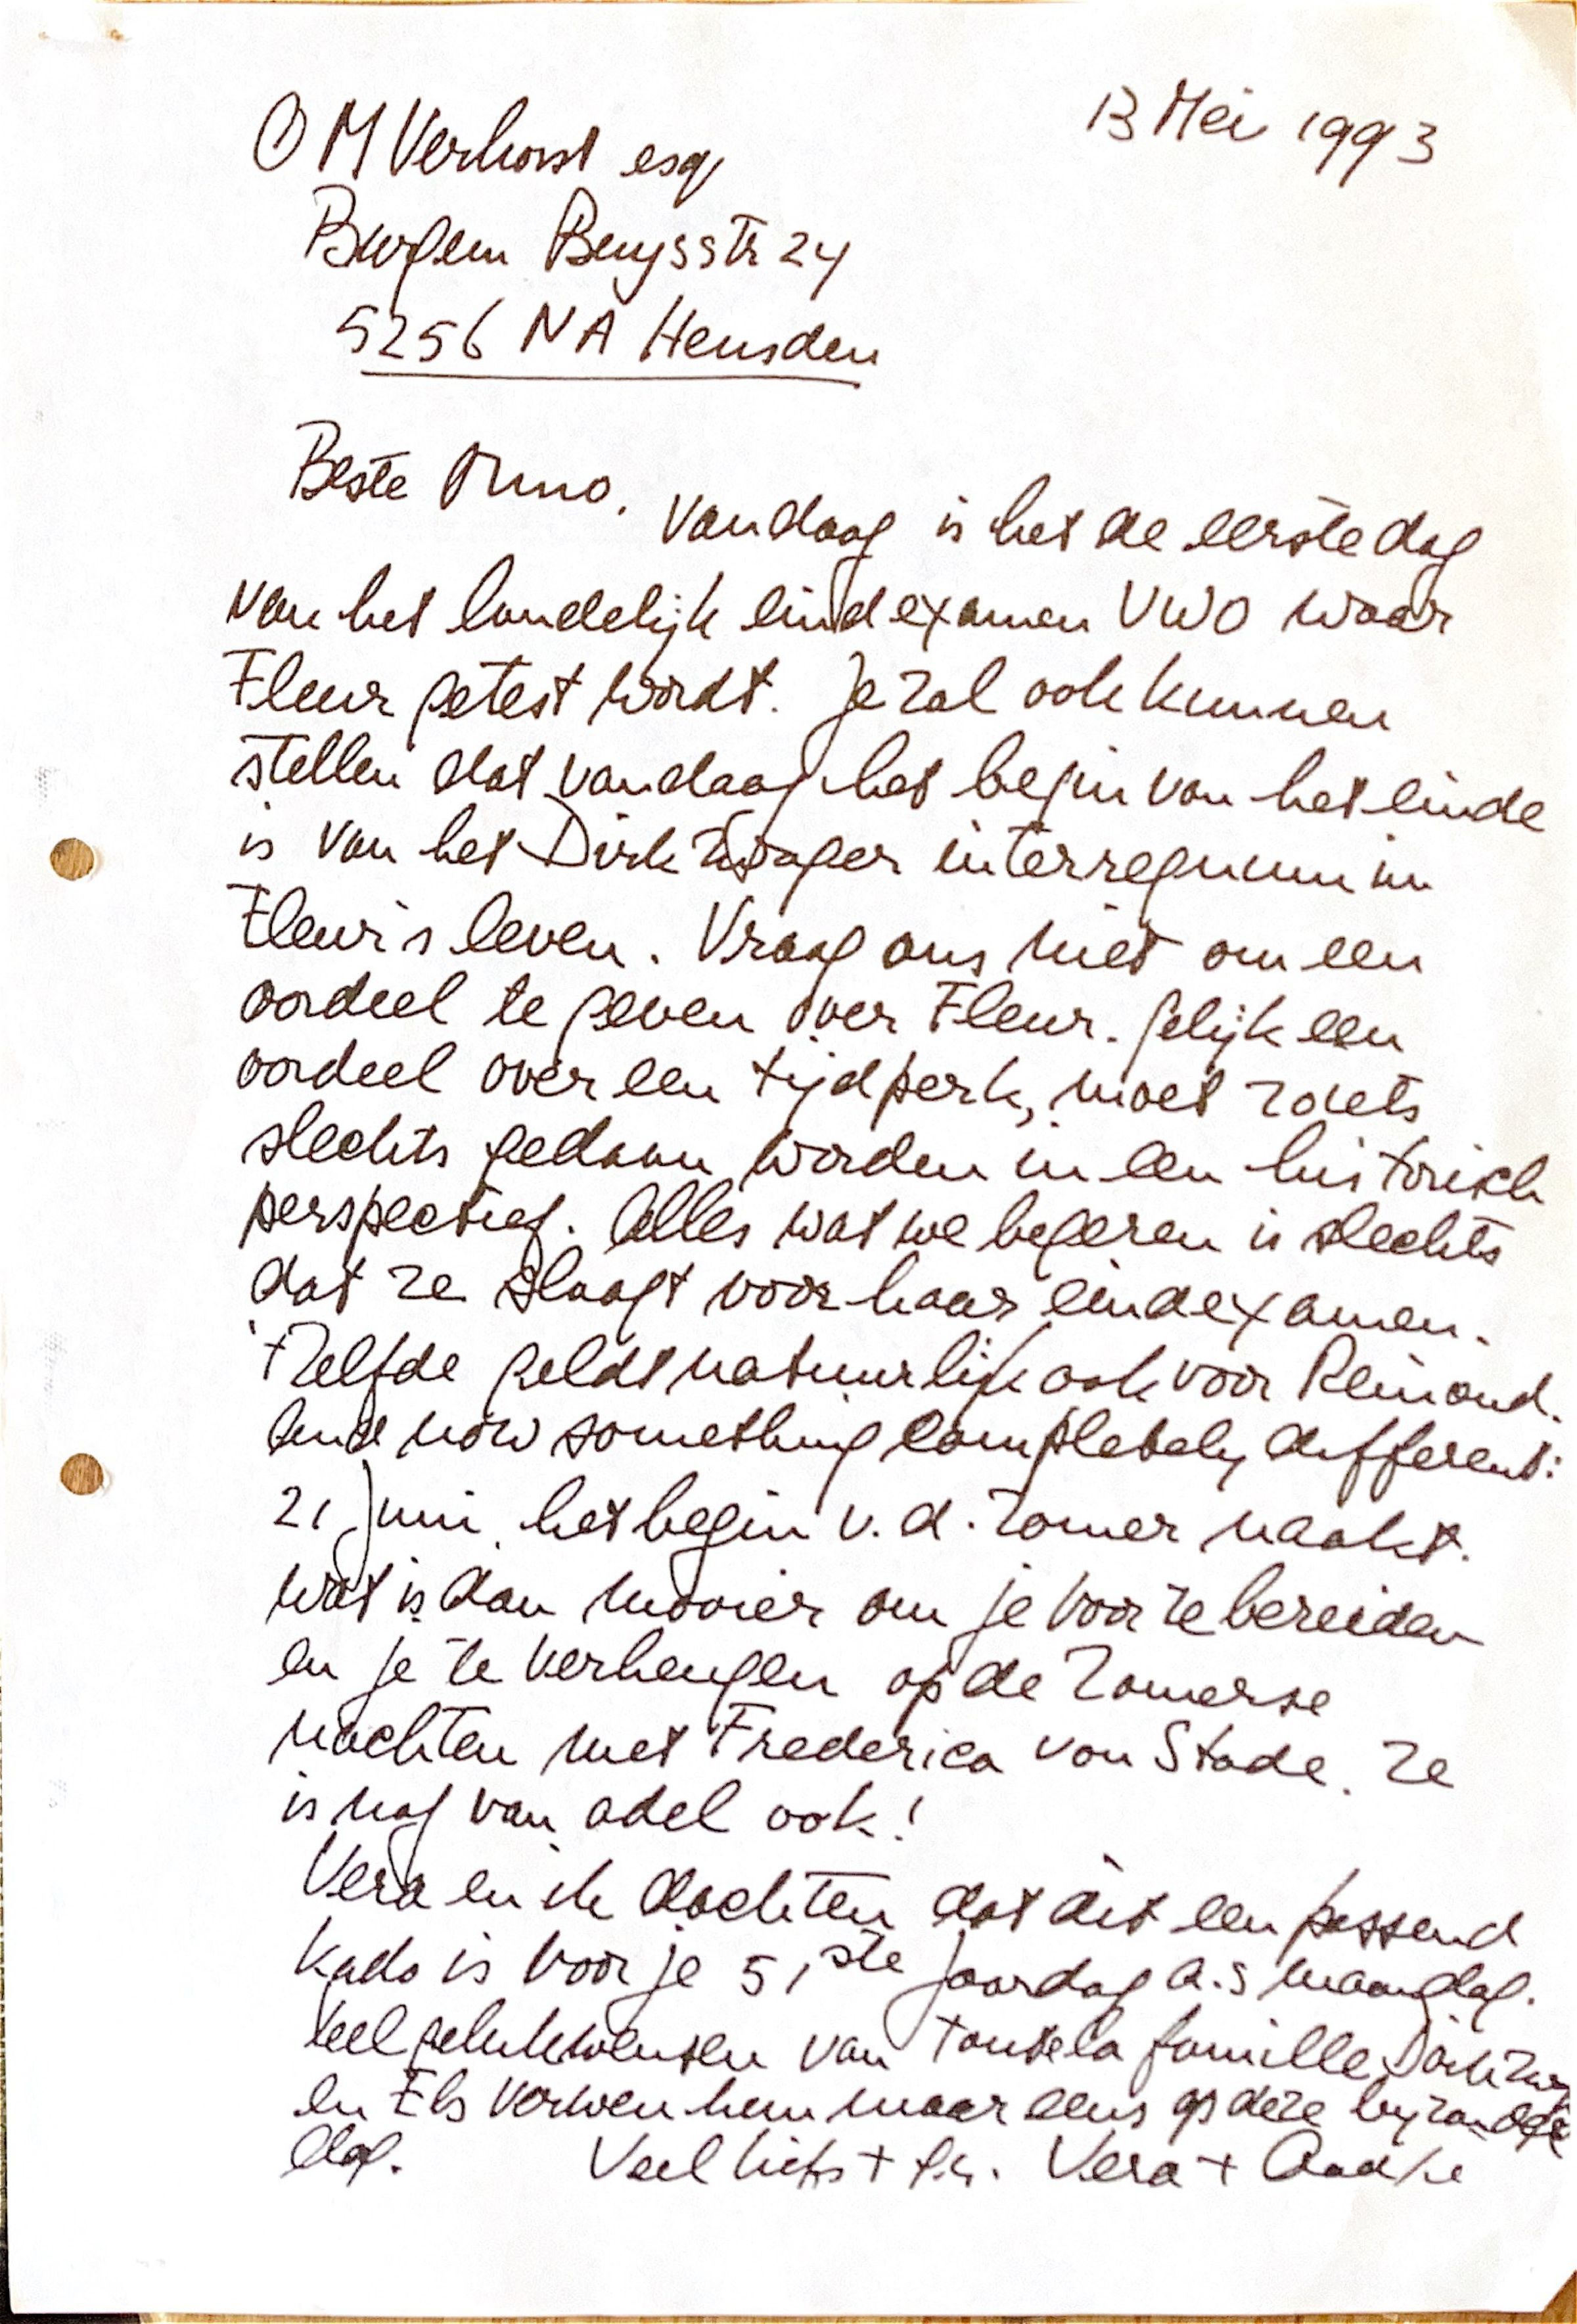 O M Verhorst esq,
13 Mei 1993
Burgem Buysstr 24
5256 NA Heusden
Beste Onno.
Vandaag is het de eerste dag
van het landelijk eindexamen VWO waar
Fleur getest wordt. Je zal ook kunnen
stellen dat vandaag het begin van het einde
is van het Dirkzwager interregnum in
Fleur's leven. Vraag ons niet om een
oordeel te geven over Fleur. gelijk een
oordeel over een tijdperk, moet zoiets
slechts gedaan worden in een historisch
perspectief. Alles wat we begeren is slechts
dat ze slaagt voor haar eindexamen.
'tZelfde geldt natuurlijk ook voor Reinoud.
And now something completely different:
21 Juni, het begin v.d. zomer naakt.
wat is dan mooier om je voor te bereiden
en je te verheugen op de zomerse
nachten met Frederica von Stade. Ze
is nog van adel ook!
Vera en ik dachten dat dit een passend
kado is voor je 51ste Jaardag a.s maandag.
Veel gelukwensen van toute la famille Dirkzw
en Els verwen hem maar eens op deze byzondere
dag.
Veel liefs + gr. Vera +